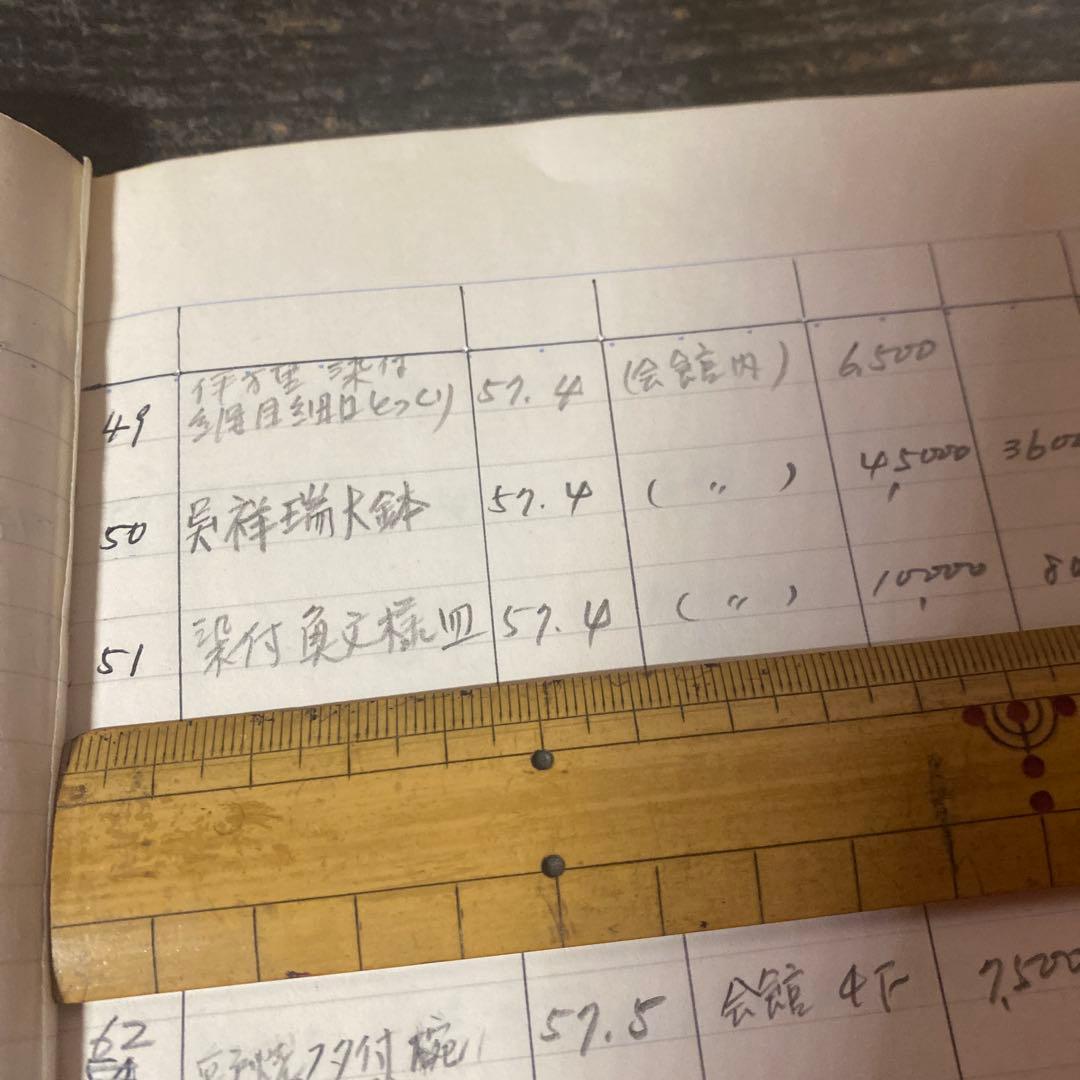 伊万里 染付
49 網目細口(とっくり) 57.4 (会館内) 6,500
50 呉祥瑞大鉢 57.4 ( 〃 ) 45,000 3600
51 染付魚文様皿 57.4 ( 〃 ) 10,000 80
62 フタ付碗 57.5 会館 4下 7,500